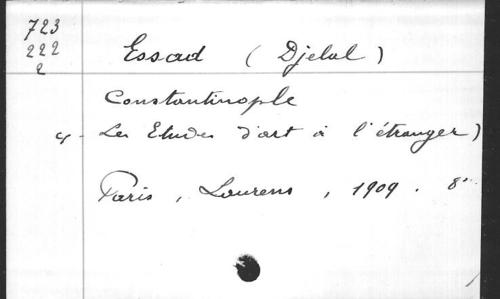 723
222
2
Essad (Djelal)
Constantinople
Les Etudes d'art à l'étranger)
Paris, Laurens, 1909. 8°